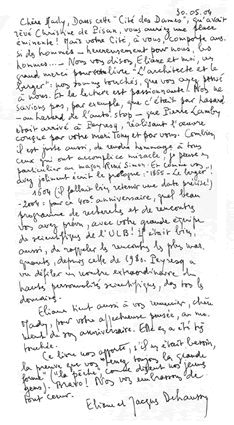 30.05.04
Chère Mady, Dans cette "Cité des Dames", qu'avait
rêvé Christine de Pisan, vous auriez une place
éminente! Mais votre Cité à vous, comporte aussi
des hommes – heureusement pour nous, les
hommes... – Nous vous disons, Eliane et moi, un
grand merci pour le livre "L'architecte et le
berger": nous sommes touchés, que vous ayez pensé
à nous. Et la lecture est passionnante! Nous ne
savions pas, par exemple, que c'était par hasard
– un hasard de l'auto-stop – que Pierre Lamby
était arrivé à Peyresq, réalisant l'œuvre
conçue par votre mari Tony et par vous. Combien
il est juste aussi, de rendre hommage à tous
ceux qui ont accompli ce miracle, je pense en
particulier au major Simon. Et comme vous
avez joliment écrit le prologue: "1655 – Le berger".
1604 (il fallait bien retenir une date précise!)
– 2004: pour ce 400e anniversaire, quel beau
programme de recherche et de rencontres
vous avez prévu, avec votre grande équipe
de scientifiques de l'ULB! Il était bien,
aussi, de rappeler les rencontres les plus mar-
quantes, depuis celle de 1981. Peyresq a
vu défiler un nombre extraordinaire de
hauts personnalités scientifiques, dans tous les
domaines.
Eliane tient aussi à vous remercier, chère
Mady, pour votre affectueuse pensée, au mo-
ment de son anniversaire. Elle en a été très
touchée.
Ce livre nous apporte, s'il en était besoin,
la preuve que vous tenez toujours la grande
forme (la pêche, comme disent nos jeunes
gens). Bravo! Nous vous embrassons de
tout cœur.
Eliane et Jacques Dehaussy